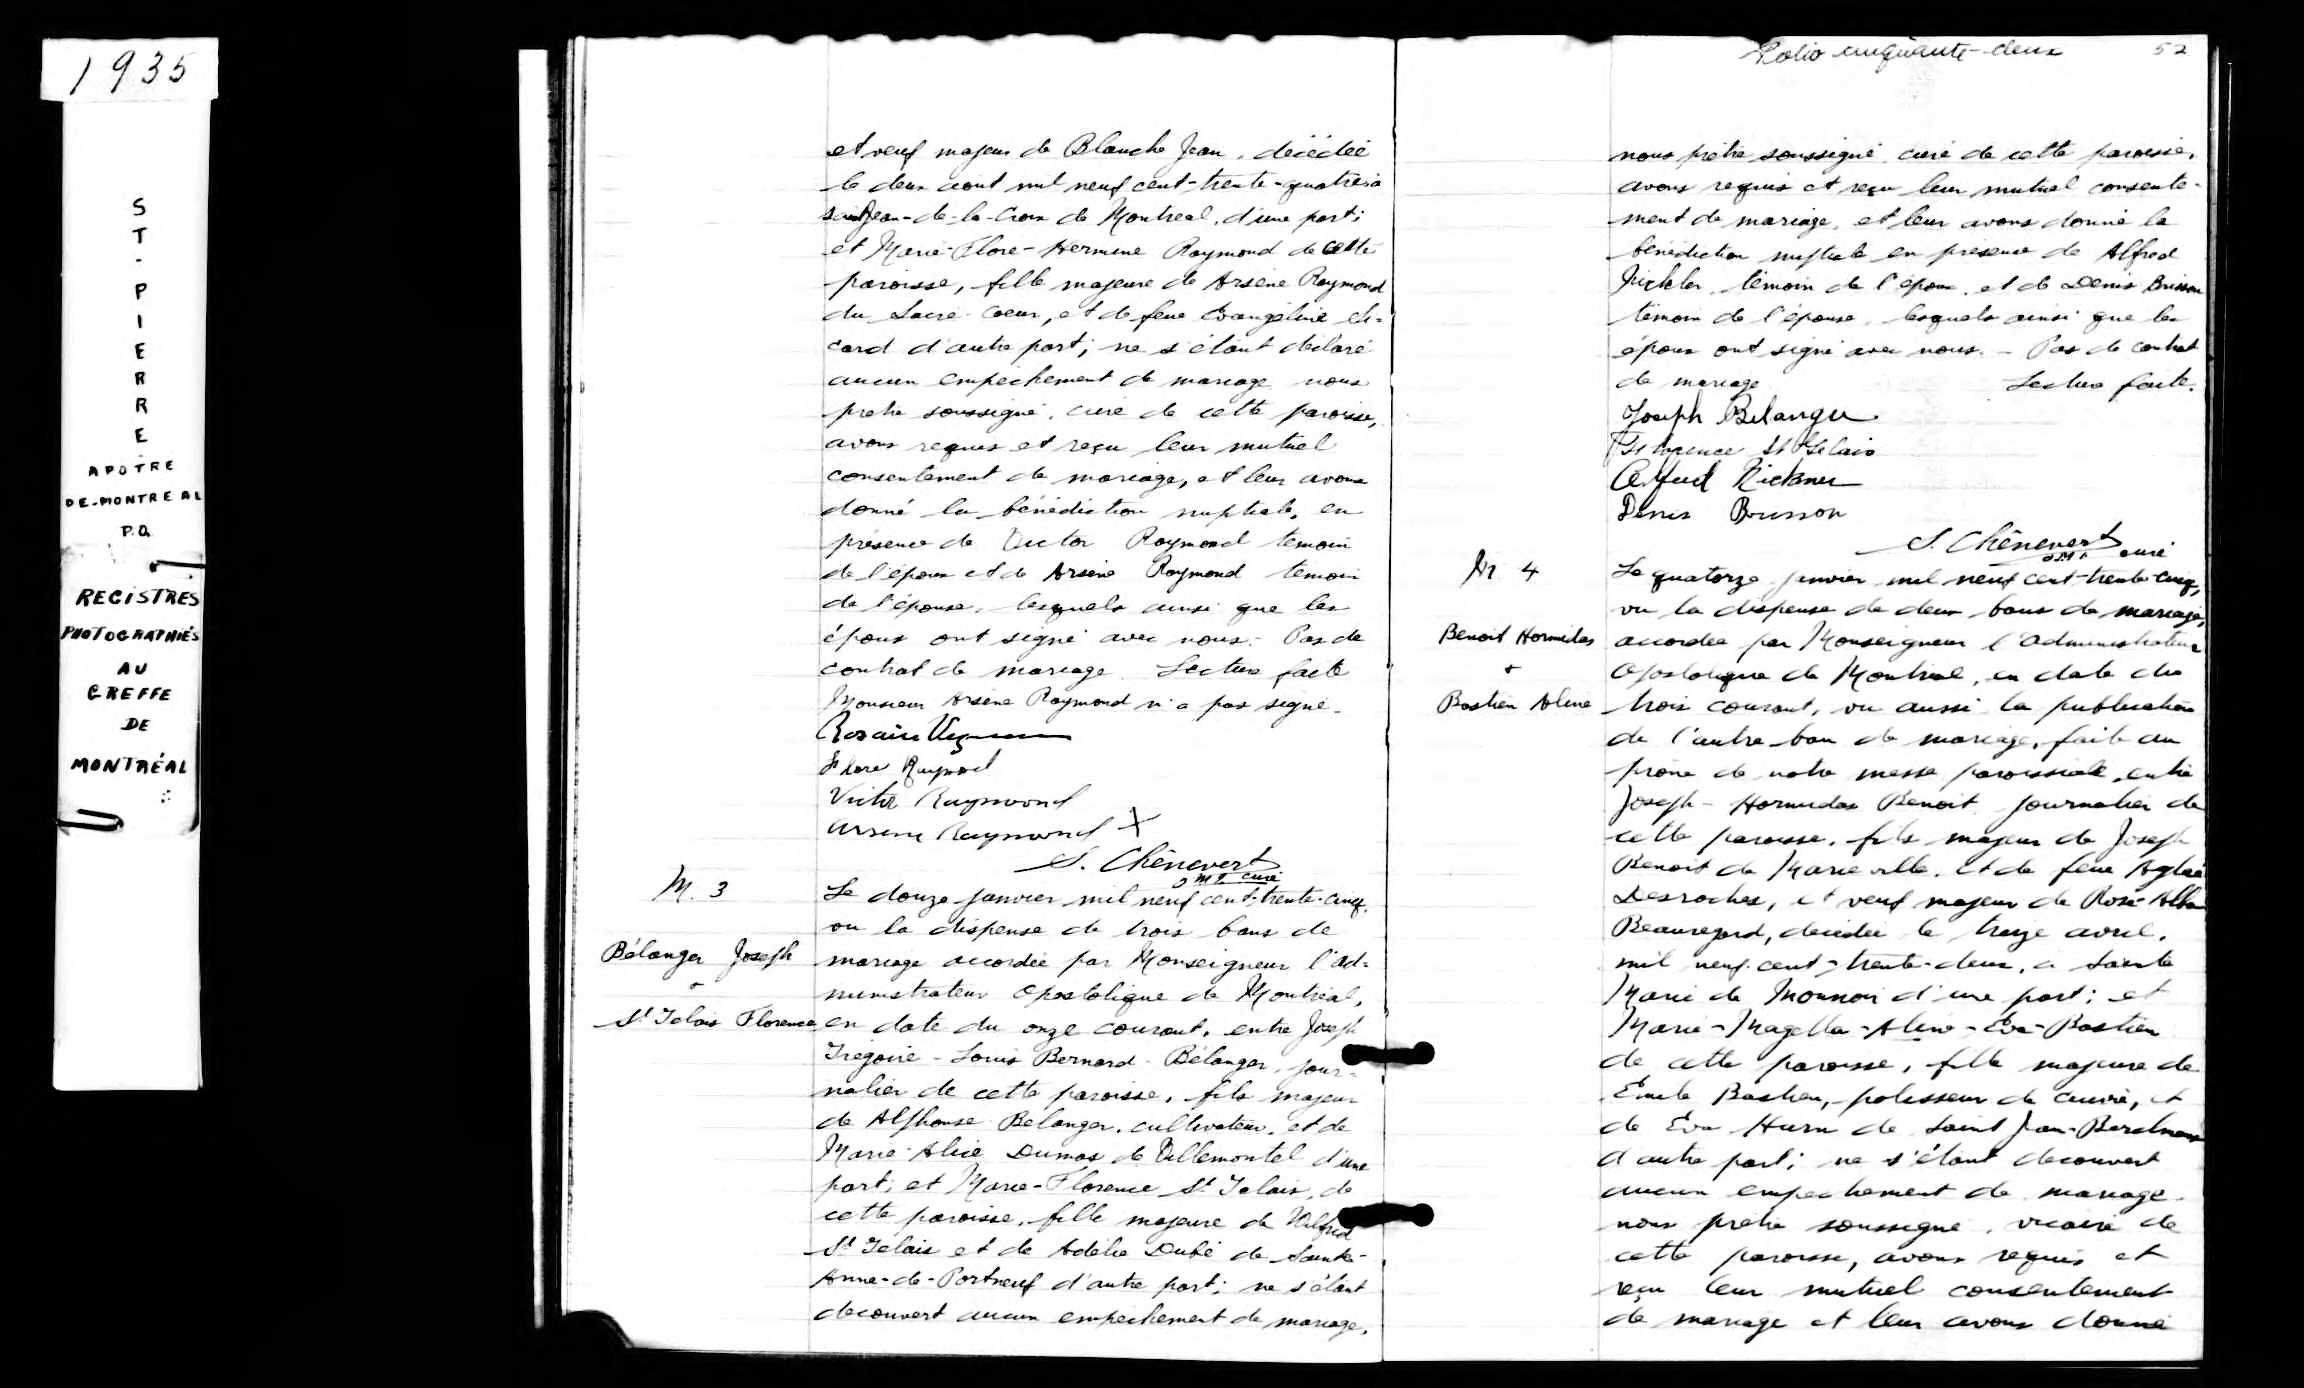 1935
ST-PIERRE
APÔTRE
DE-MONTREAL
P.Q.
REGISTRES
PHOTOGRAPHIÉS
AU
GREFFE
DE
MONTRÉAL
et veuf majeur de Blanche Jean, décédée
le deux août mil neuf cent-trente-quatre à
Saint Jean-de-la-Croix de Montréal, d'une part;
et Marie-Flore-Hermine Raymond de cette
paroisse, fille majeure de Arsène Raymond
du Sacré-Coeur, et de feue Evangéline
d'autre part; ne s'étant déclaré
aucun empêchement de mariage nous
prêtre soussigné, curé de cette paroisse,
avons requis et reçu leur mutuel
consentement de mariage, et leur avons
donné la bénédiction nuptiale, en
présence de Victor Raymond témoin
de l'époux et de Arsène Raymond témoin
de l'épouse, lesquels ainsi que les
époux ont signé avec nous.- Pas de
contrat de mariage. Lecture faite
Monsieur Arsène Raymond n'a pas signé.
Rosaire
Flore Raymond
Victor Raymond
Arsene Raymond X
S. Chênevert
o.m.i. curé
M. 3
Bélanger Joseph
+
St Gelais Florence
Le douze janvier mil neuf cent-trente-cinq,
vu la dispense de trois bans de
mariage accordée par Monseigneur l'ad-
ministrateur Apostolique de Montréal,
en date du onze courant, entre Joseph
Grégoire-Louis Bernard-Bélanger, jour-
nalier de cette paroisse, fils majeur
de Alphonse Belanger, cultivateur, et de
Marie-Alice Dumas de Villemontel d'une
part; et Marie-Florence St Gelais, de
cette paroisse, fille majeure de Wilfrid
St Gelais et de Adèlia Dubé de Sainte-
Anne-de-Portneuf d'autre part; ne s'étant
découvert aucun empêchement de mariage,
Folio cinquante-deux 52
nous prêtre soussigné, curé de cette paroisse,
avons requis et reçu leur mutuel consente-
ment de mariage, et leur avons donné la
bénédiction nuptiale en présence de Alfred
témoin de l'époux, et de Denis Brisson
témoin de l'épouse, lesquels ainsi que les
époux ont signé avec nous.- Pas de contrat
de mariage Lecture faite.
Joseph Belanger
Florence St Gelais
Alfred
Denis Brisson
S. Chênevert
o.m.i. curé
M. 4
Benoit Hormidas
+
Bastien Aline
Le quatorze janvier mil neuf cent-trente-cinq,
vu la dispense de deux bans de mariage,
accordée par Monseigneur l'administrateur
Apostolique de Montréal, en date du
trois courant, vu aussi la publication
de l'autre ban de mariage, faite au
prône de notre messe paroissiale, entre
Joseph-Hormidas Benoit, journalier de
cette paroisse, fils majeur de Joseph
Benoit de Marieville, et de feue Aglaé
Desroches, et veuf majeur de Rose-Alba
Beauregard, décédée le treize avril,
mil neuf-cent-trente-deux, à Sainte
Marie de Monnoir d'une part; et
Marie-Magella-Aline-Eva-Bastien
de cette paroisse, fille majeure de
Emile Bastien, polisseur de cuivre, et
de Eva Hurn de Saint Jean-Berchmans
d'autre part; ne s'étant découvert
aucun empêchement de mariage.
nous prêtre soussigné, vicaire de
cette paroisse, avons requis et
reçu leur mutuel consentement
de mariage et leur avons donné